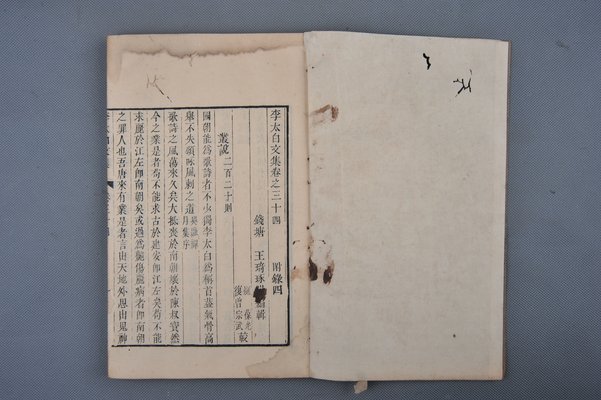 李太白文集卷之三十四 附錄四
錢塘 王琦琢
輯
復曾宗武較
叢說 二百二十則
國朝能為歌詩者不少獨李太白為稱首蓋氣骨高
舉不失頌咏風刺之道
歌詩之風蕩來久矣大抵喪於南朝壞於陳叔寶然
今之業是者苟不能求古於建安即江左矣苟不能
求麗於江左即南朝矣或過為艷傷麗病者即南朝
之罪人也吾唐來有業是者言出天地外思出鬼神